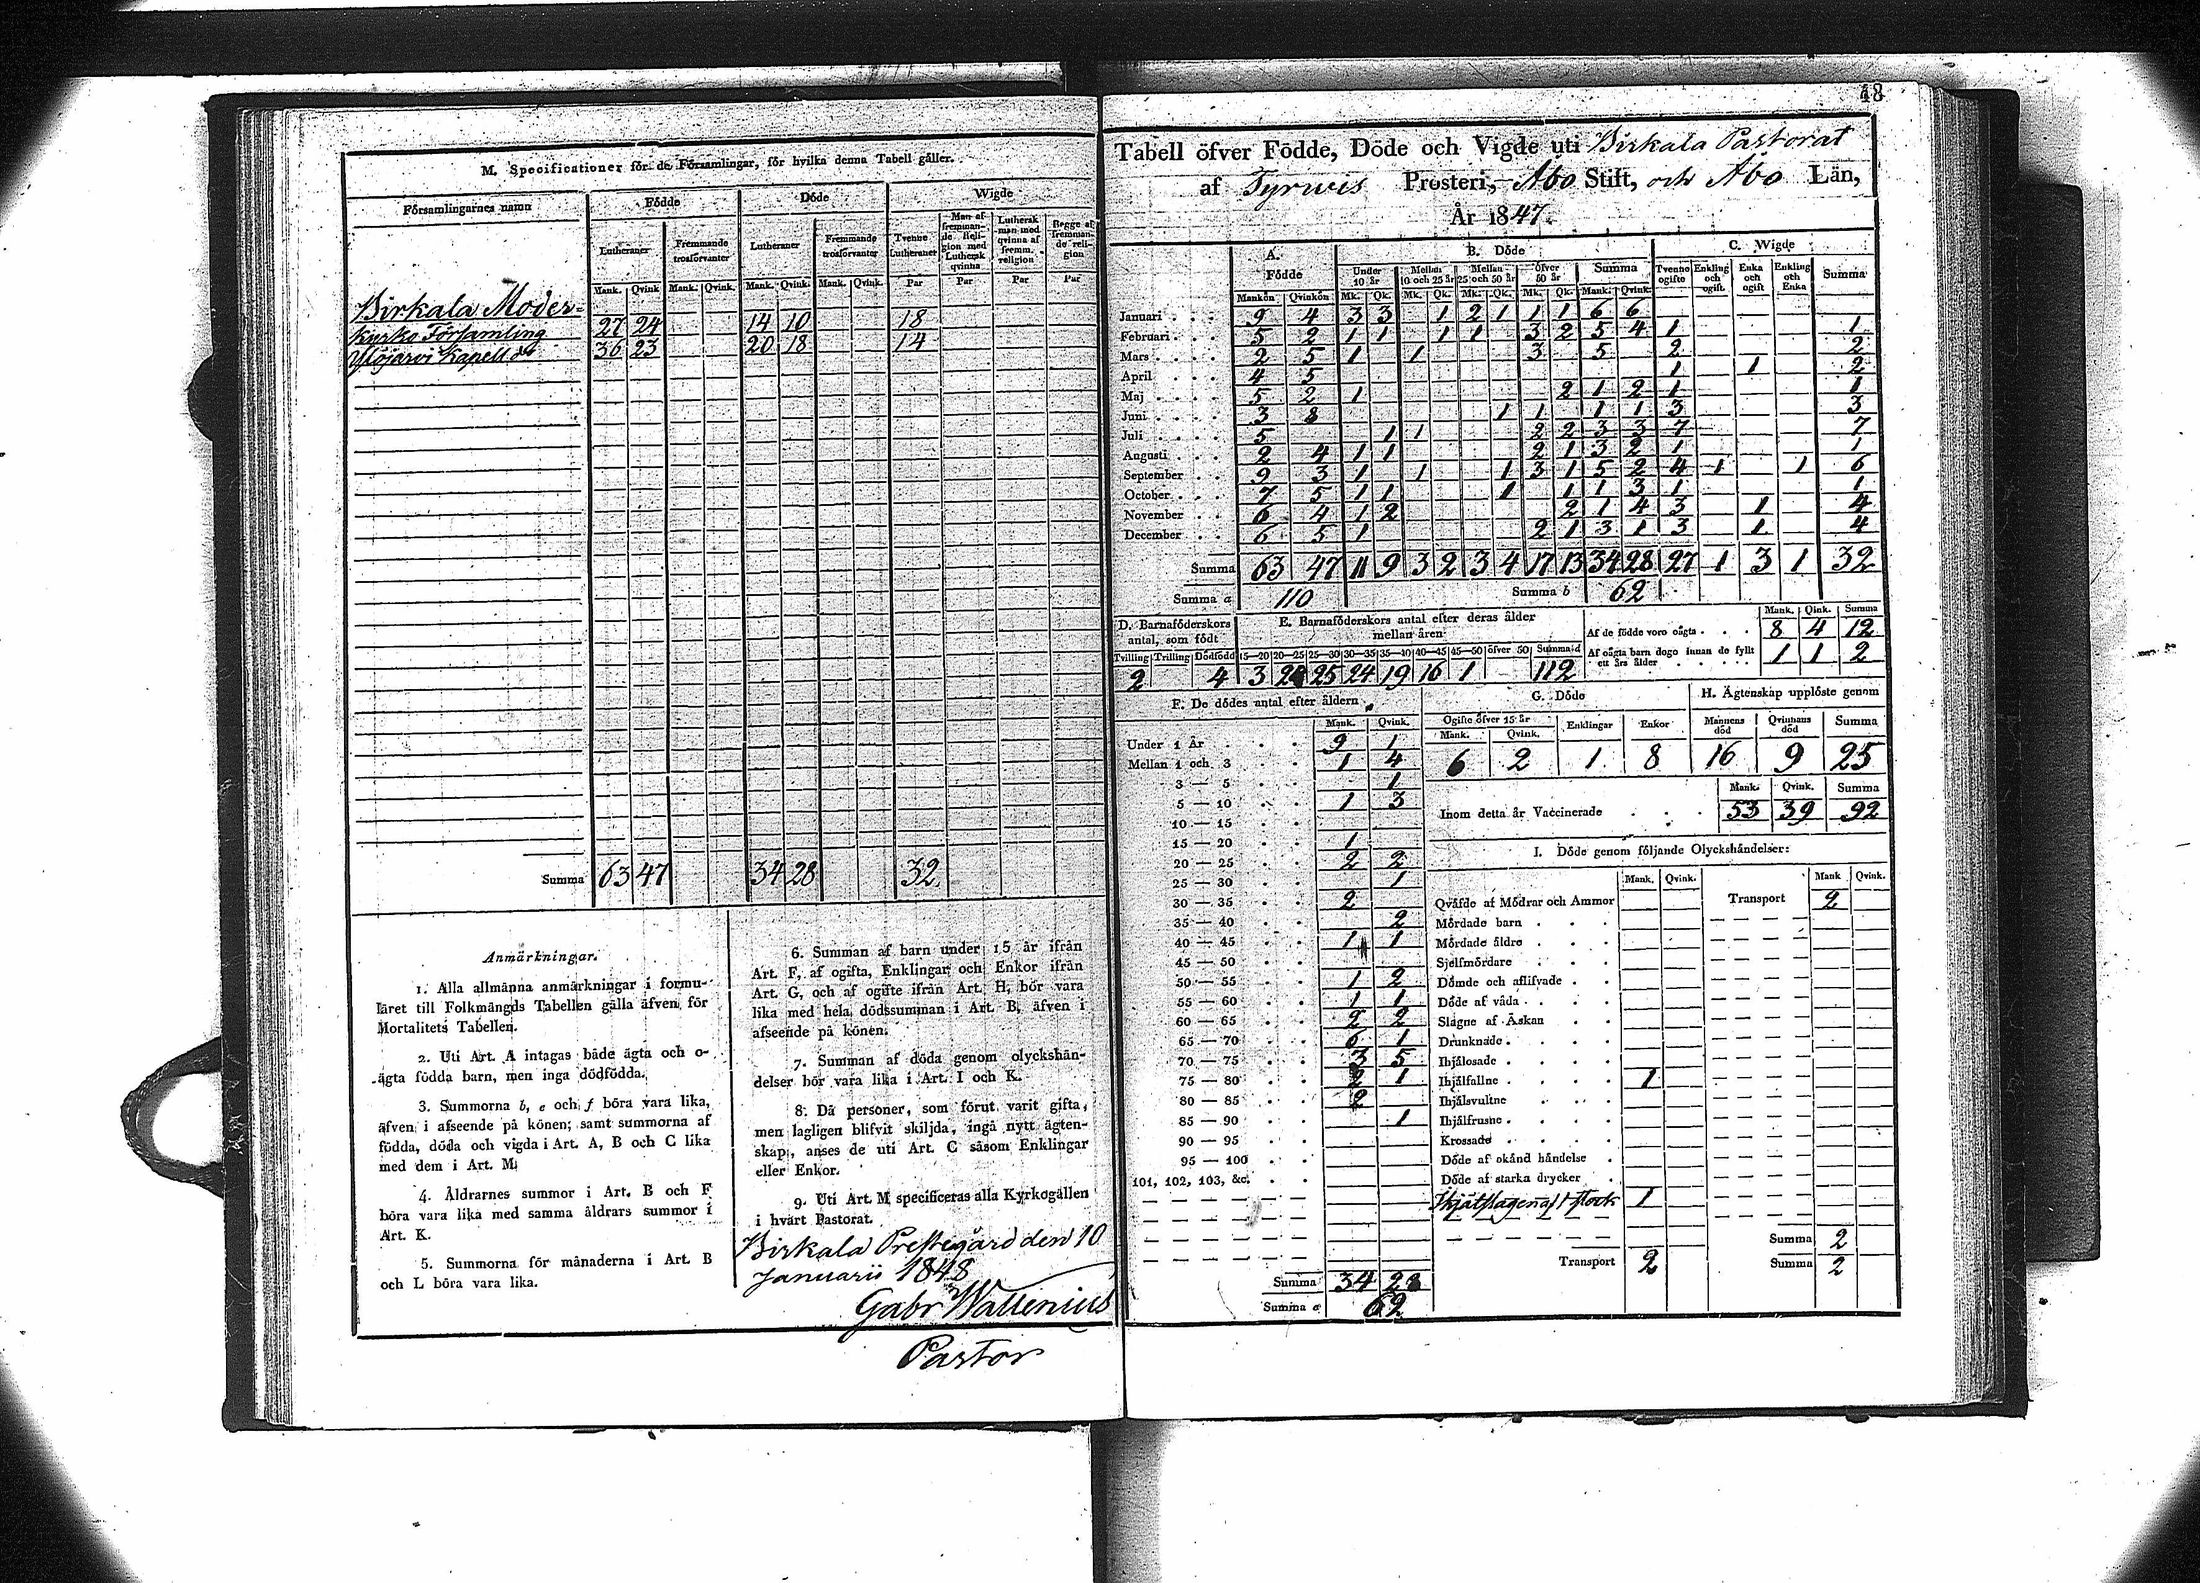 M. Specificationer för de Församlingar, för hvilka denna Tabell gäller.
Församlingarnes namn Födde Döde Wigde
Lutheraner Fremmande trosförvanter Lutheraner Fremmande trosförvanter Tvenne Lutheraner Man af fremmande Religion med Luthersk qvinna Luthersk man med qvinna af fremm. religion Begge af fremmande religion
Mank. Qvink. Mank. Qvink. Mank. Qvink. Mank. Qvink. Par Par Par Par
Birkala Moder=
Kyrko Församling 27 24 14 10 18
Ylöjärvi Kapell 36 23 20 18 14
Summa 63 47 34 28 32
Anmärkningar.
1. Alla allmänna anmärkningar i formu-
läret till Folkmängds Tabellen gälla äfven för
Mortalitets Tabellen.
2. Uti Art. A intagas både ägta och o-
ägta födda barn, men inga dödfödda.
3. Summorna b, e och f böra vara lika,
äfven i afseende på könen; samt summorna af
födda, döda och vigda i Art. A, B och C lika
med dem i Art. M.
4. Åldrarnes summor i Art. B och F
böra vara lika med samma åldrars summor i
Art. K.
5. Summorna för månaderna i Art. B
och L böra vara lika.
6. Summan af barn under 15 år ifrån
Art. F, af ogifta, Enklingar och Enkor ifrån
Art. G, och af ogifte ifrån Art. H, bör vara
lika med hela dödssumman i Art. B, äfven i
afseende på könen.
7. Summan af döda genom olyckshän-
delser bör vara lika i Art. I och K.
8. Då personer, som förut varit gifta,
men lagligen blifvit skiljda, ingå nytt ägten-
skap, anses de uti Art. C såsom Enklingar
eller Enkor.
9. Uti Art. M specificeras alla Kyrkogällen
i hvart Pastorat.
Birkala Prestegård den 10
Januarii 1848
Gabr Wallenius
Pastor
48
Tabell öfver Födde, Döde och Vigde uti Birkala Pastorat
af Tyrwis Prosteri, Åbo Stift, och Åbo Län,
År 1847.
A. Födde B. Döde C. Wigde
Under 10 år Mellan 10 och 25 år Mellan 25 och 50 år öfver 50 år Summa Tvenne ogifte Enkling och ogift Enka och ogift Enkling och Enka Summa
Mankön Qvinkön Mk. Qk. Mk. Qk. Mk. Qk. Mk. Qk. Mank. Qvink.
Januari 9 4 3 3 1 2 1 1 1 6 6
Februari 5 2 1 1 1 1 3 2 5 4 1 1
Mars 2 5 1 1 3 5 2 2
April 4 5 1 1 2
Maj 5 2 1 2 1 2 1 1
Juni 3 8 1 1 1 1 3 3
Juli 5 1 1 2 2 3 3 7 7
Augusti 2 4 1 1 2 1 3 2 1 1
September 9 3 1 1 1 3 1 5 2 4 1 1 6
October 7 5 1 1 1 1 1 3 1 1
November 6 4 1 2 2 1 4 3 1 4
December 6 5 1 2 1 3 1 3 1 4
Summa 63 47 11 9 3 2 3 4 17 13 34 28 27 1 3 1 32
Summa a 110 Summa b 62
D. Barnaföderskors antal, som födt
Tvilling Trilling Dödfödd
2 4
E. Barnaföderskors antal efter deras ålder mellan åren
15—20 20—25 25—30 30—35 35—40 40—45 45—50 öfver 50 Summa d
3 25 24 19 16 1 112
Mank. Qink. Summa
Af de födde voro oägta 8 4 12
Af oägta barn dogo innan de fyllt ett års ålder 1 1 2
F. De dödes antal efter åldern
Mank. Qvink.
Under 1 År 9 1
Mellan 1 och 3 1 4
3 — 5 1
5 — 10 1 3
10 — 15
15 — 20 1
20 — 25 2 2
25 — 30 1
30 — 35 2
35 — 40 2
40 — 45 1 1
45 — 50
50 — 55 1 2
55 — 60 1 1
60 — 65 2 2
65 — 70 6 1
70 — 75 3 5
75 — 80 2 1
80 — 85 2
85 — 90 1
90 — 95
95 — 100
101, 102, 103, &c.
Summa 34 28
Summa e 62
G. Döde
Ogifte öfver 15 år Enklingar Enkor
Mank. Qvink.
6 2 1 8
H. Ägtenskap upplöste genom
Mannens död Qvinnans död Summa
16 9 25
Mank. Qvink. Summa
Inom detta år Vaccinerade 53 39 92
I. Döde genom följande Olyckshändelser:
Mank. Qvink. Mank Qvink.
Qväfde af Mödrar och Ammor Transport 2
Mördade barn
Mördade äldre
Sjelfmördare
Dömde och aflifvade
Döde af våda
Slagne af Åskan
Drunknade
Ihjälosade
Ihjälfallne 1
Ihjälsvultne
Ihjälfrusne
Krossade
Döde af okänd händelse
Döde af starka drycker
Ihjälslagen af stock 1
Summa 2
Transport 2 Summa 2